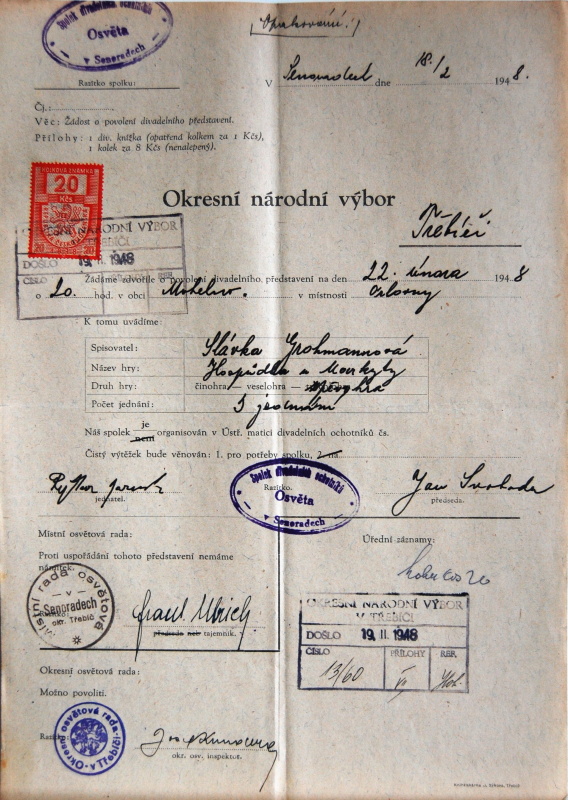 (Opakování!)
Spolek divadelních ochotníků
Osvěta
v Senoradech
Razítko spolku:
V Senoradech dne 18./2 1948.
Čj.:
Věc: Žádost o povolení divadelního představení.
Přílohy: 1 div. knížka (opatřená kolkem za 1 Kčs),
1 kolek za 8 Kčs (nenalepený).
KOLKOVÁ ZNÁMKA
20
Kčs
Okresní národní výbor
Třebíči
OKRESNÍ NÁRODNÍ VÝBOR
V TŘEBÍČI
DOŠLO 19. II. 1948
ČÍSLO
Žádáme zdvořile o povolení divadelního představení na den 22. února 1948
o 20. hod. v obci Mohelno. v místnosti orlovny
K tomu uvádíme:
Spisovatel: Slávka Grohmannová
Název hry: Hospůdka u Markyty
Druh hry: činohra — veselohra — zpěvohra
Počet jednání: 3 jednání
Náš spolek je
není organisován v Ústř. matici divadelních ochotníků čs.
Čistý výtěžek bude věnován: 1. pro potřeby spolku, 2. na
Razítko.
Spolek divadelních ochotníků
Osvěta
v Senoradech
jednatel.
Jan Svoboda
předseda.
Místní osvětová rada:
Úřední záznamy:
Proti uspořádání tohoto představení nemáme
námitek.
Místní rada osvětová
v
Senoradech
okr. Třebíč
Ulrich
předseda neb tajemník.
OKRESNÍ NÁRODNÍ VÝBOR
V TŘEBÍČI
DOŠLO 19. II. 1948
ČÍSLO PŘÍLOHY REF.
13/60
Okresní osvětová rada:
Možno povoliti.
Okresní osvětová rada
v Třebíči
Razítko:
okr. osv. inspektor.